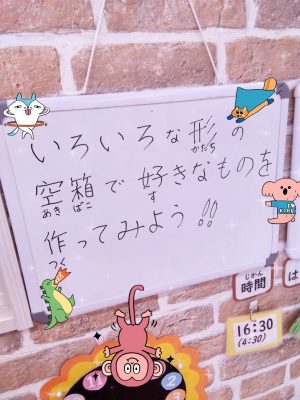 いろいろな形の
かたち
空箱で好きなものを
あき ばこ す
作ってみよう!!
つく
じかん
時間
は
16:30
(4:30)
11
1
2